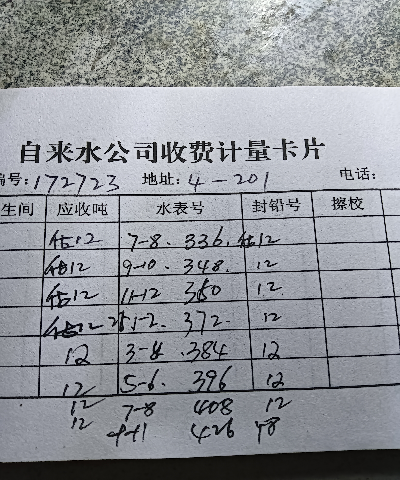 自来水公司收费计量卡片
编号:172723 地址:4-201 电话:
生间 应收吨 水表号 封铅号 擦校
估12 7-8. 336. 估12
估12 9-10. 348. 12
估12 11-12 360 12
估12 25.1-2. 372. 12
12 3-4 .384 12
12 5-6. 396 12
12 7-8 408 12
12 426 18